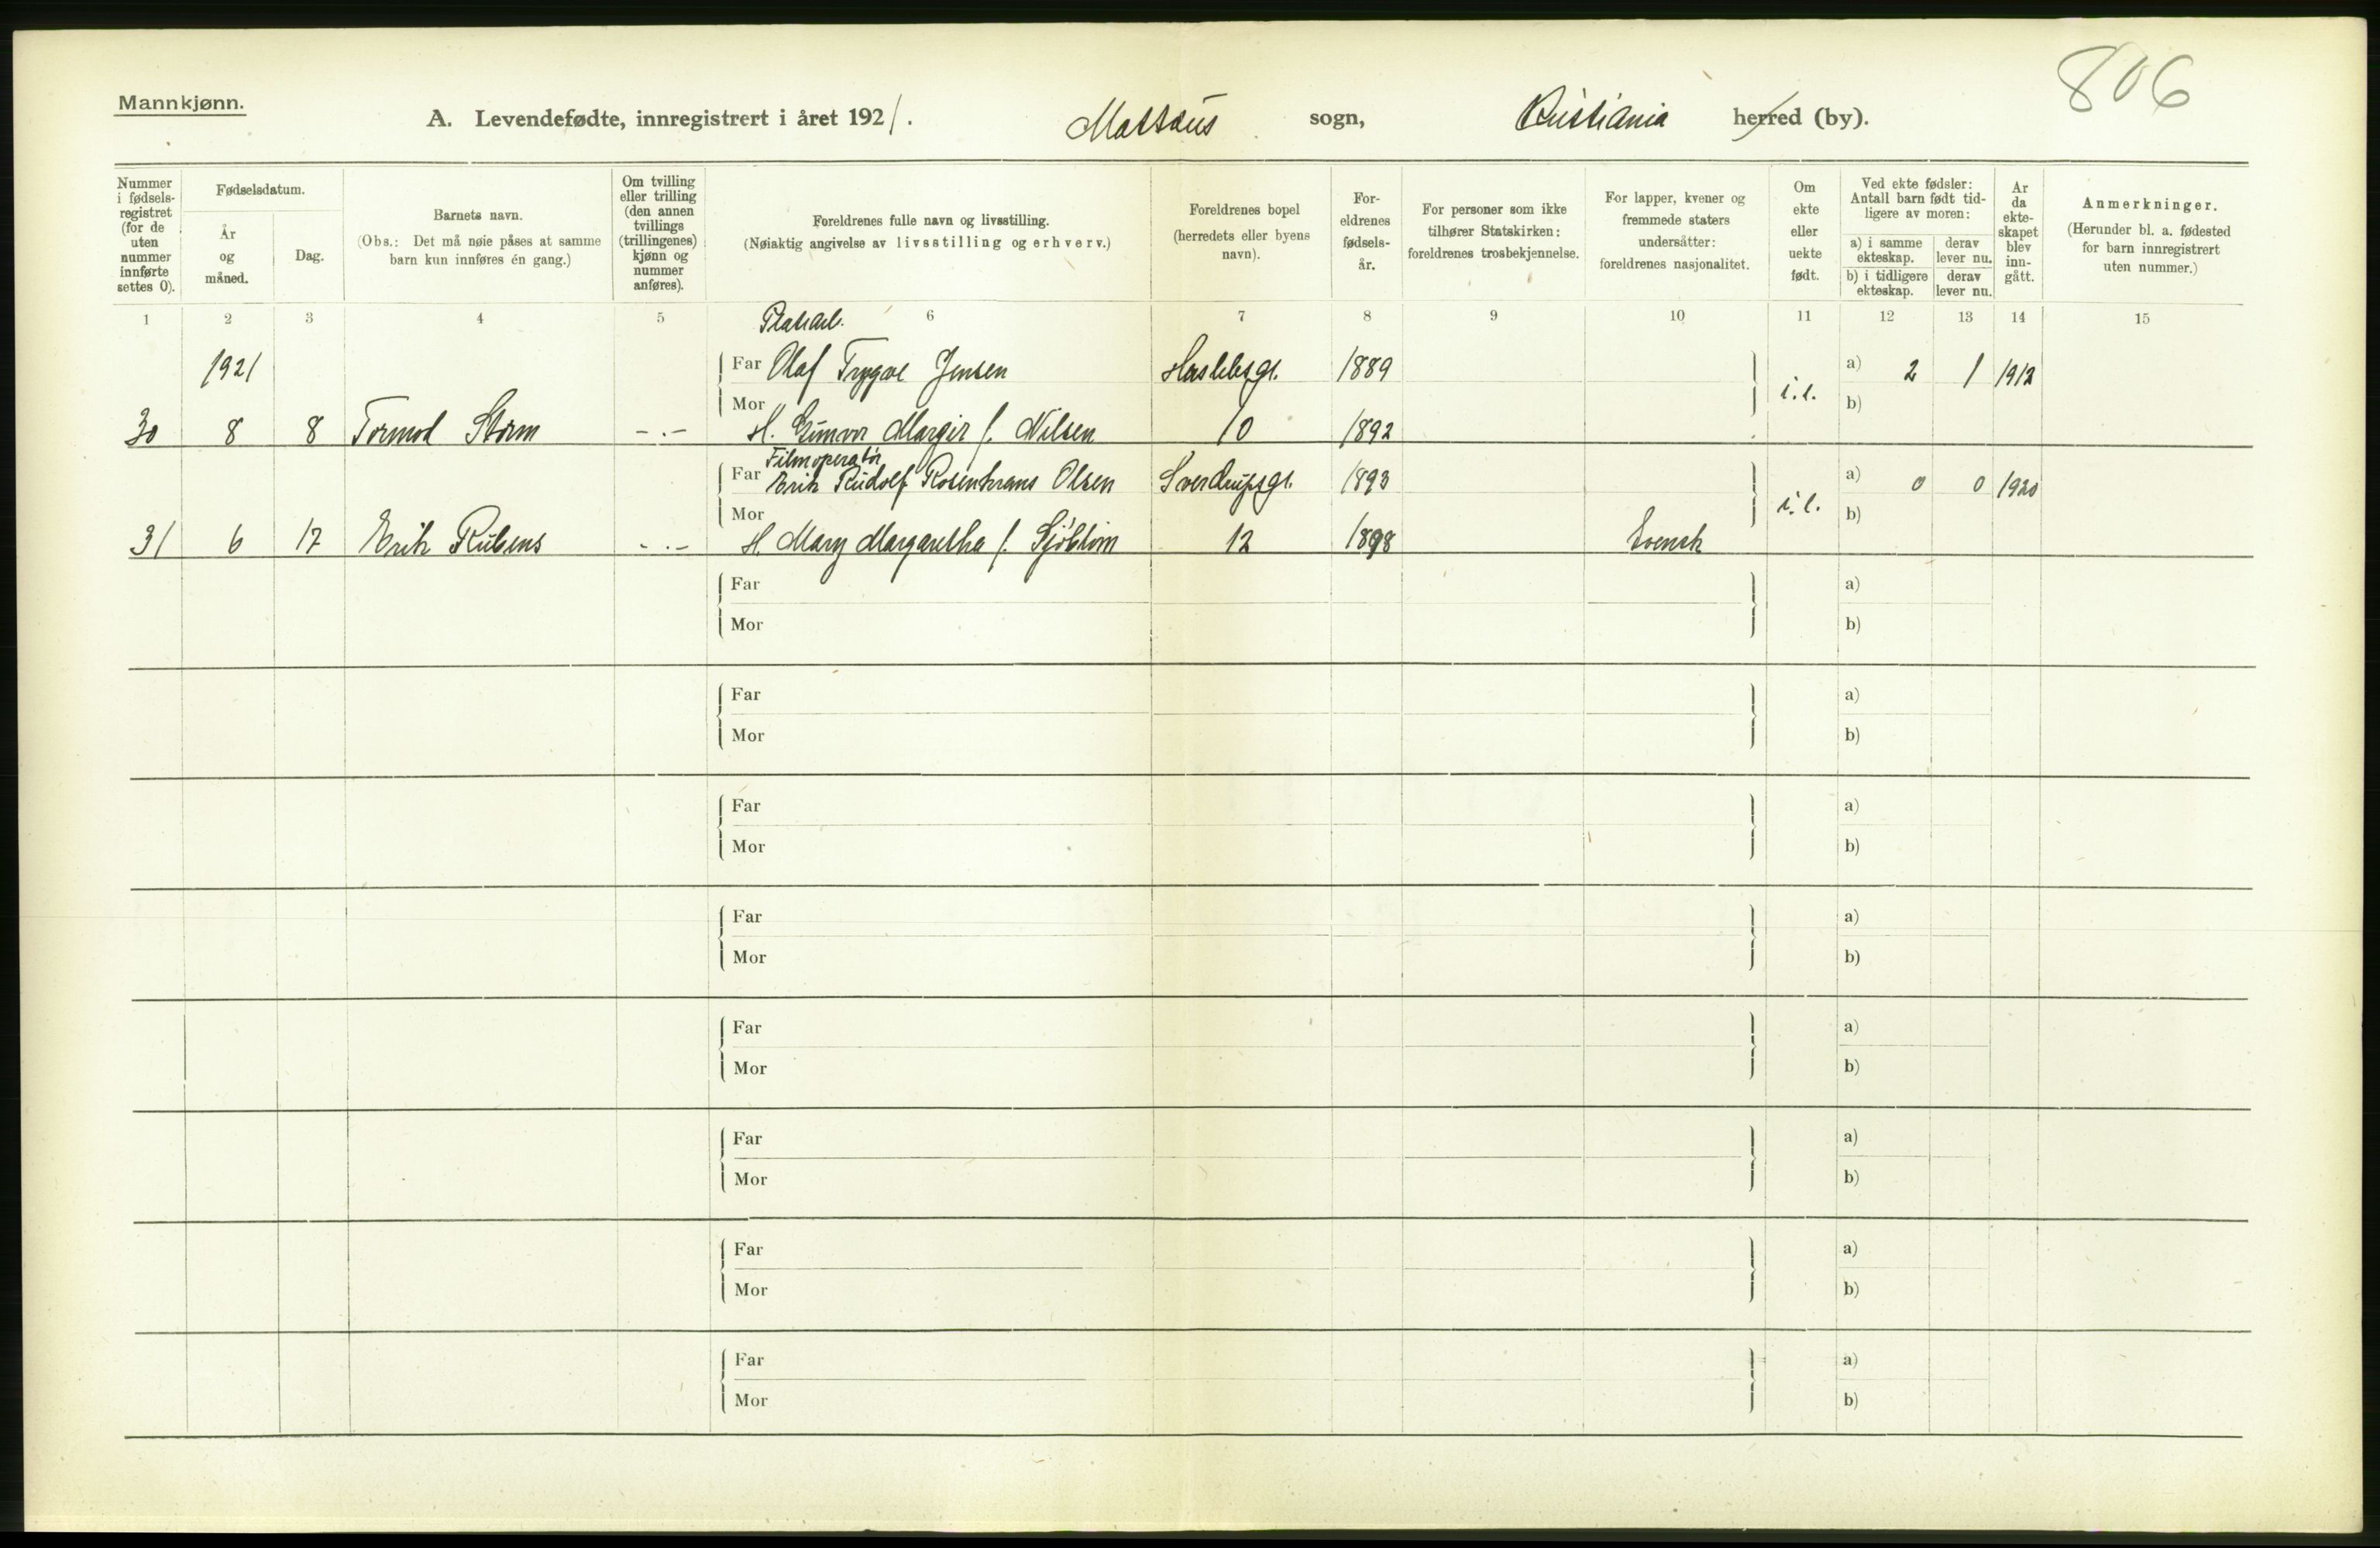 806
Mannkjønn.
A. Levendefødte, innregistrert i året 1921. Mattæus sogn, Kristiania herred (by).
Nummer i fødsels-registret (for de uten nummer innførte settes 0).
Fødselsdatum.
År og måned.
Dag.
Barnets navn.
(Obs.: Det må nøie påses at samme barn kun innføres én gang.)
Om tvilling eller trilling (den annen tvillings (trillingenes) kjønn og nummer anføres).
Foreldrenes fulle navn og livsstilling.
(Nøiaktig angivelse av livsstilling og erhverv.)
Foreldrenes bopel (herredets eller byens navn).
For-eldrenes fødsels-år.
For personer som ikke tilhører Statskirken: foreldrenes trosbekjennelse.
For lapper, kvener og fremmede staters undersåtter: foreldrenes nasjonalitet.
Om ekte eller uekte født.
Ved ekte fødsler: Antall barn født tid-ligere av moren:
a) i samme ekteskap.
derav lever nu.
b) i tidligere ekteskap.
derav lever nu.
År da ekte-skapet blev inn-gått.
Anmerkninger.
(Herunder bl. a. fødested for barn innregistrert uten nummer.)
1 2 3 4 5 6 7 8 9 10 11 12 13 14 15
1921
Far Olaf Trygve Jensen 1889 a) 2 1 1912
Mor i.e. b)
30 8 8 Tormod Storm -.- H. Gunvor Margit f. Nilsen 10 1892
Filmoperatør
Far Erik Rudolf Rosenkrans Olsen Sverdrupsgt. 1893 a) 0 0 1920
Mor i.e. b)
31 6 17 Erik Rubens -.- H. Mary Margaretha f. Sjöblom 12 1898 Svensk
Far a)
Mor b)
Far a)
Mor b)
Far a)
Mor b)
Far a)
Mor b)
Far a)
Mor b)
Far a)
Mor b)
Far a)
Mor b)
Far a)
Mor b)